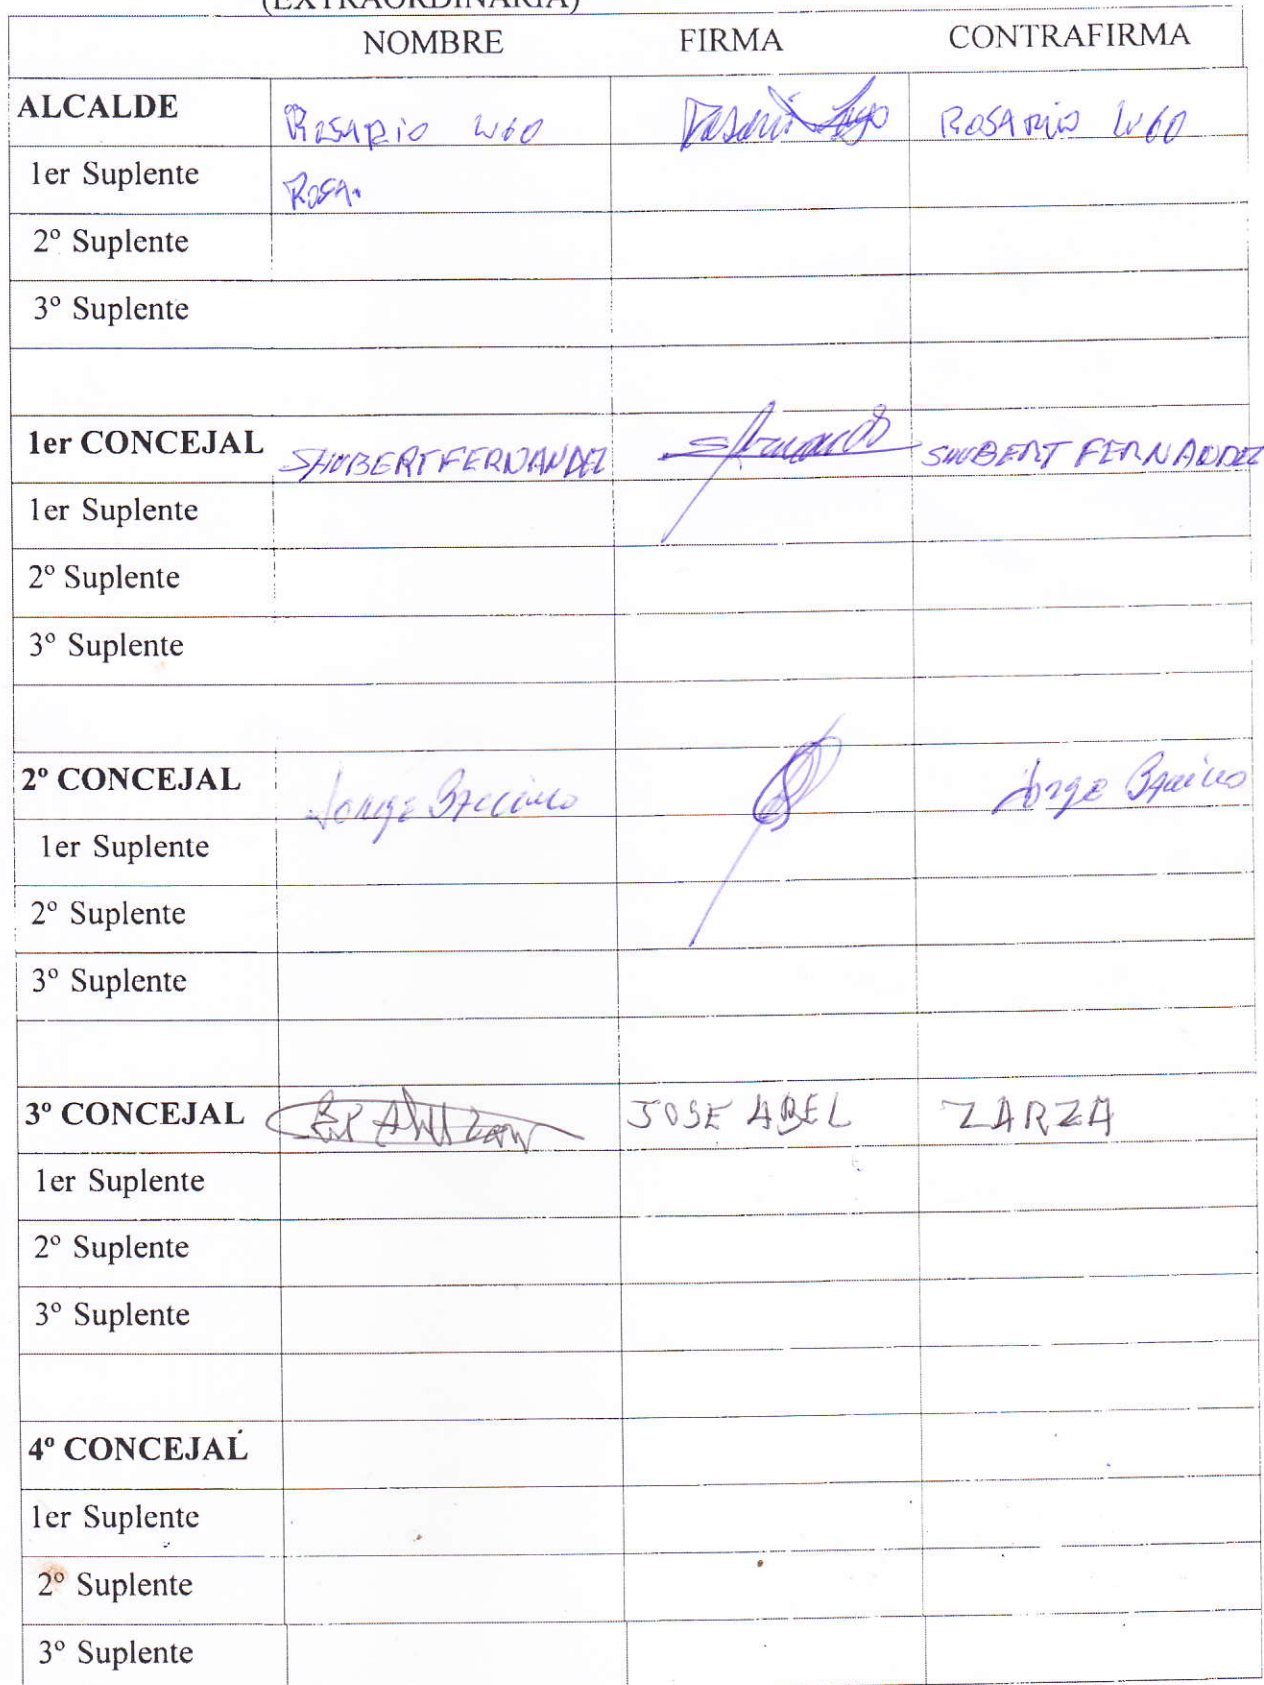 (EXTRAORDINARIA)
NOMBRE FIRMA CONTRAFIRMA
ALCALDE Rosario Lugo Rosario Lugo Rosario Lugo
1er Suplente Rosa.
2º Suplente
3º Suplente
1er CONCEJAL SHUBERT FERNANDEZ SHUBERT FERNANDEZ
1er Suplente
2º Suplente
3º Suplente
2º CONCEJAL Jorge Jorge
1er Suplente
2º Suplente
3º Suplente
3º CONCEJAL JOSE ABEL ZARZA
1er Suplente
2º Suplente
3º Suplente
4º CONCEJAL
1er Suplente
2º Suplente
3º Suplente